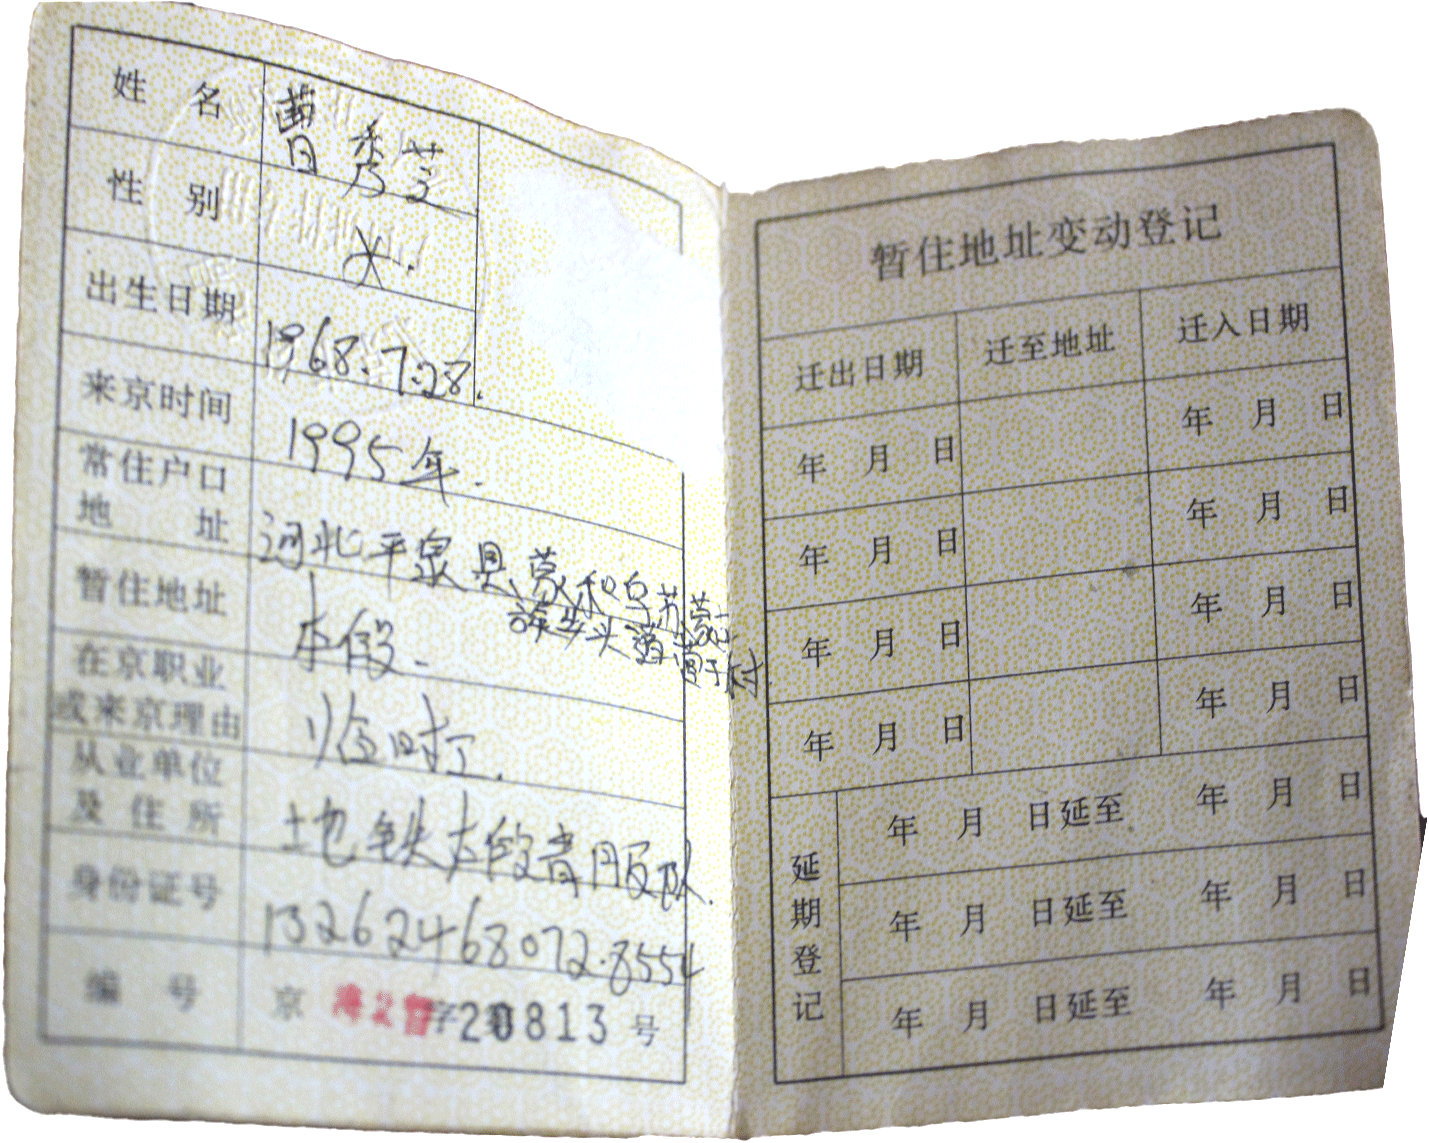 姓 名 曹秀芝
性 别 女.
出生日期 1968.7.28.
来京时间 1995年.
常住户口
地 址 河北平泉县蒙和乌苏蒙
暂住地址 本段.
在京职业
或来京理由 临时工.
从业单位
及 住 所 地铁古段
身份证号 132624680728554
编 号 京 字第20813号
暂住地址变动登记
迁出日期 迁至地址 迁入日期
年 月 日 年 月 日
年 月 日 年 月 日
年 月 日 年 月 日
年 月 日 年 月 日
延期登记
年 月 日延至 年 月 日
年 月 日延至 年 月 日
年 月 日延至 年 月 日